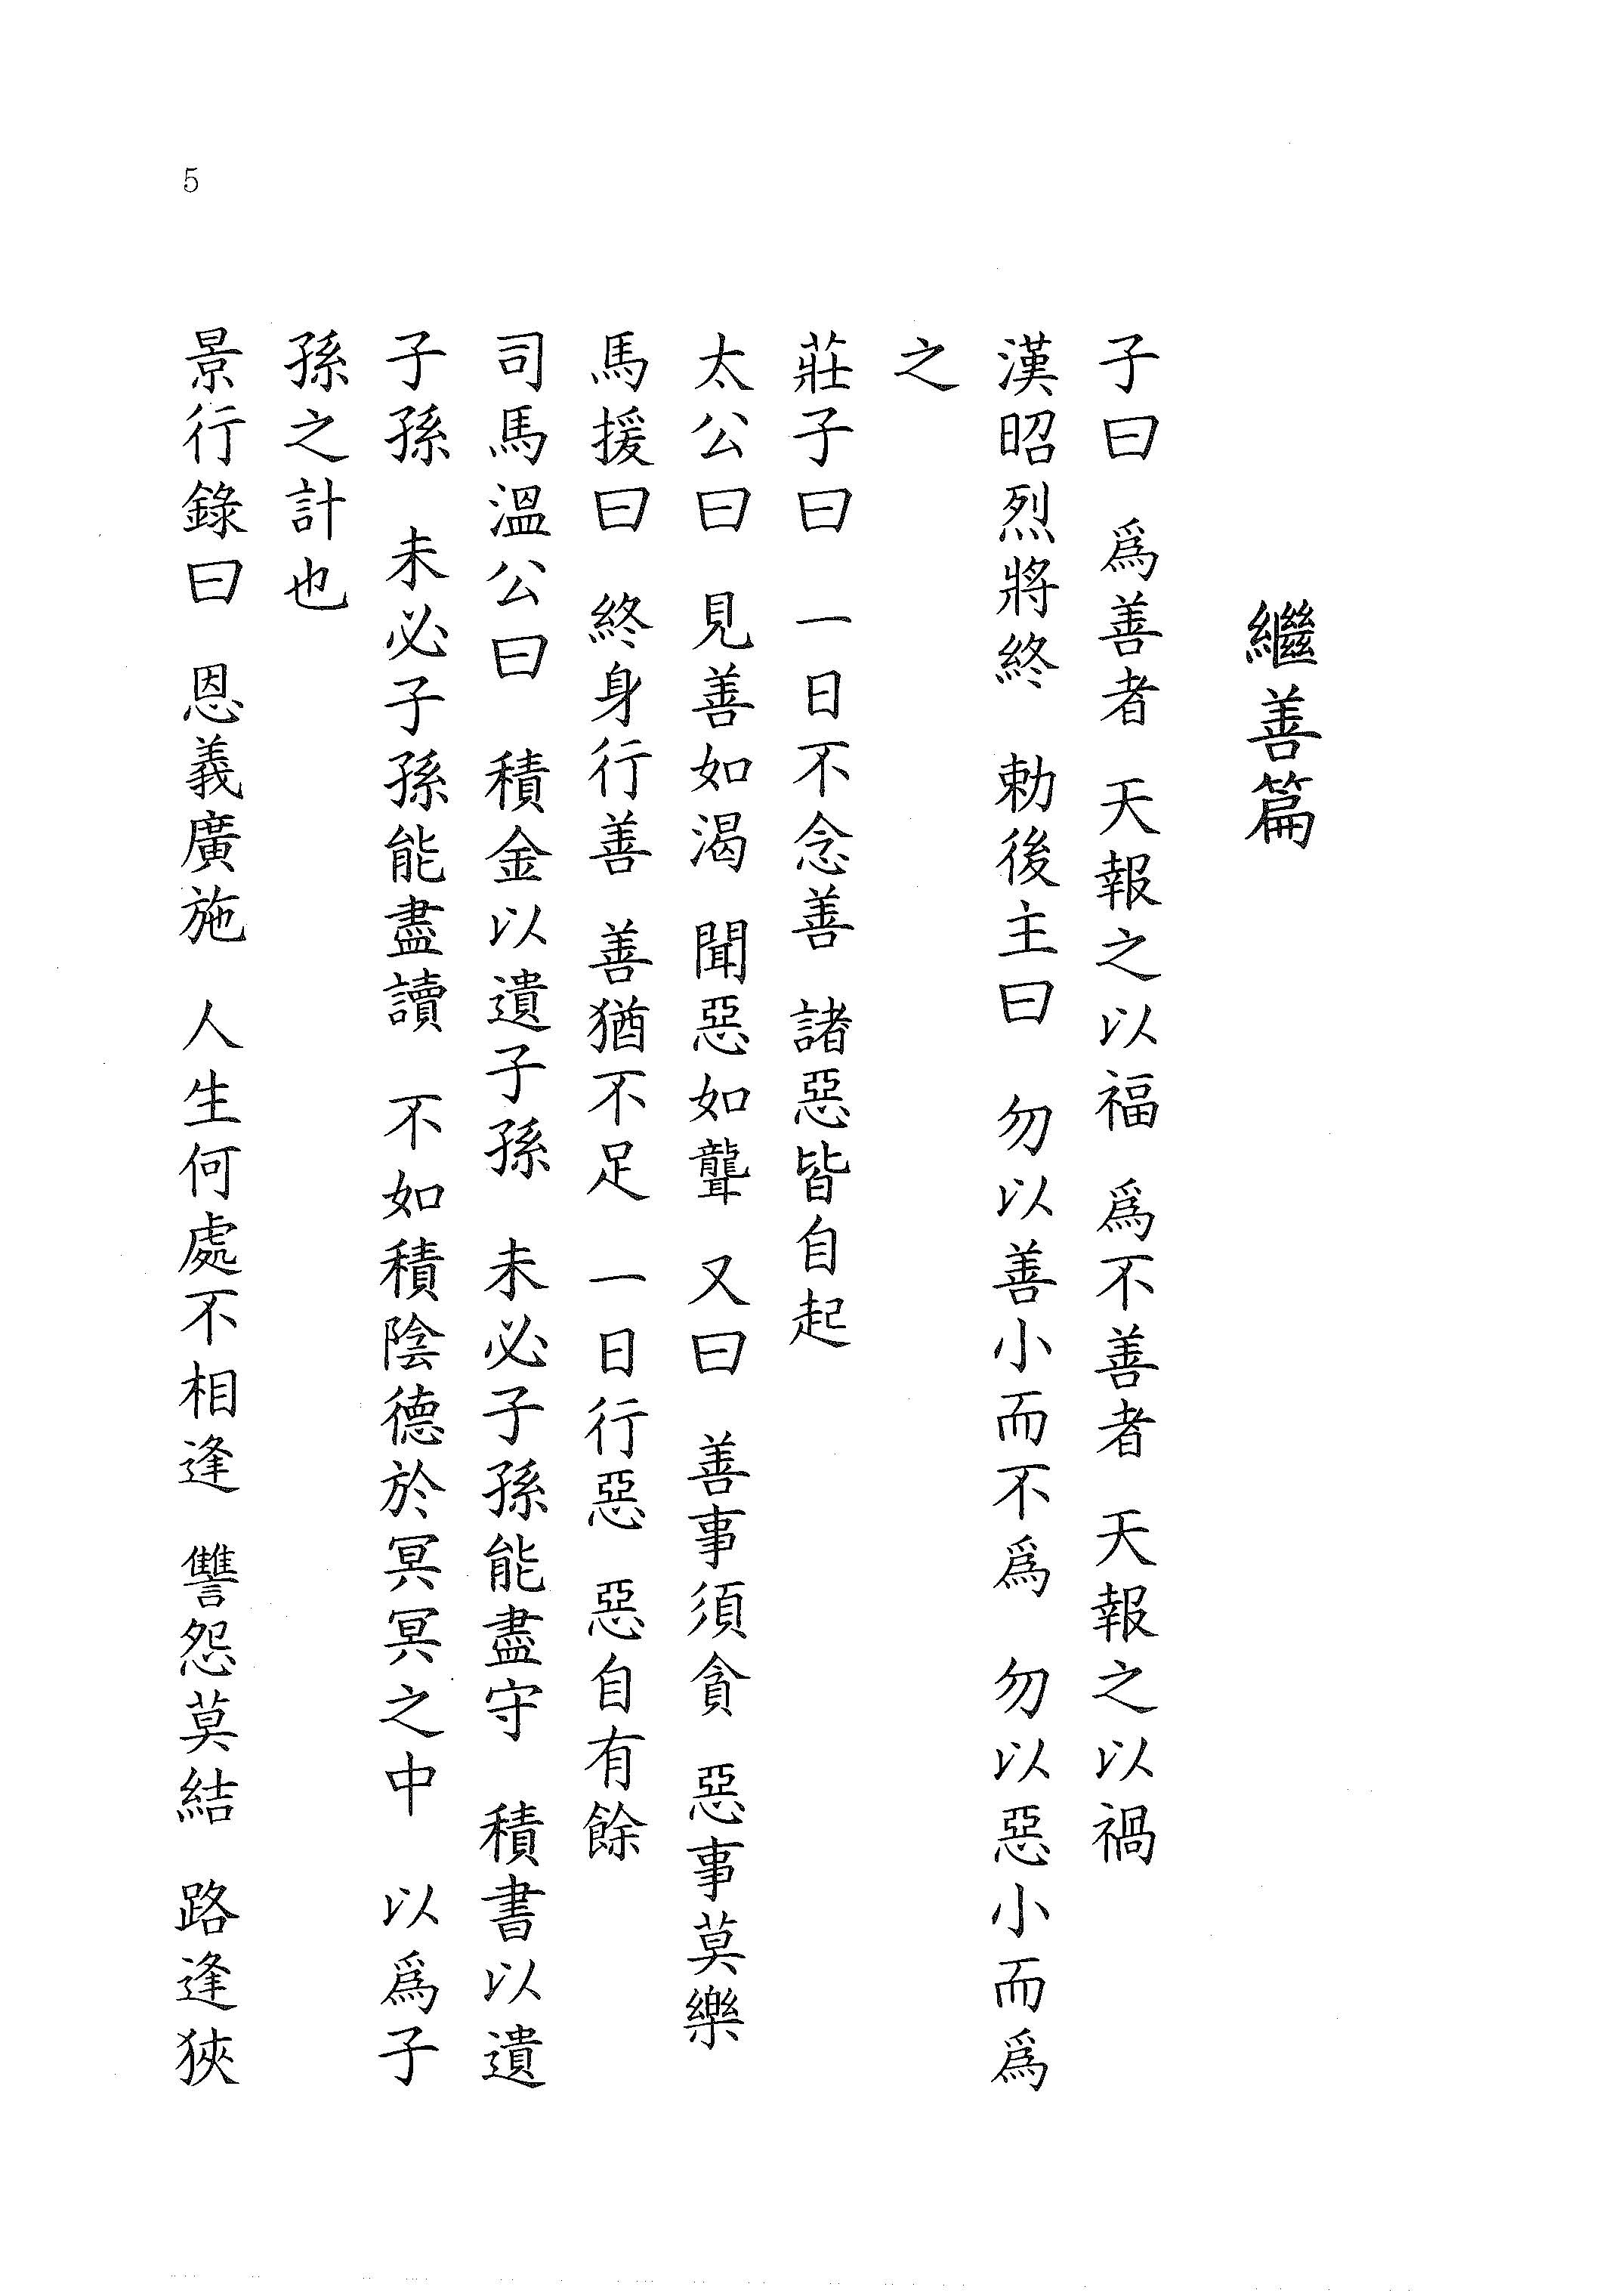 繼善篇
子曰 爲善者 天報之以福 爲不善者 天報之以禍
漢昭烈將終 勅後主曰 勿以善小而不爲 勿以惡小而爲
之
莊子曰 一日不念善 諸惡皆自起
太公曰 見善如渴 聞惡如聾 又曰 善事須貪 惡事莫樂
馬援曰 終身行善 善猶不足 一日行惡 惡自有餘
司馬溫公曰 積金以遺子孫 未必子孫能盡守 積書以遺
子孫 未必子孫能盡讀 不如積陰德於冥冥之中 以爲子
孫之計也
景行錄曰 恩義廣施 人生何處不相逢 讐怨莫結 路逢狹
5